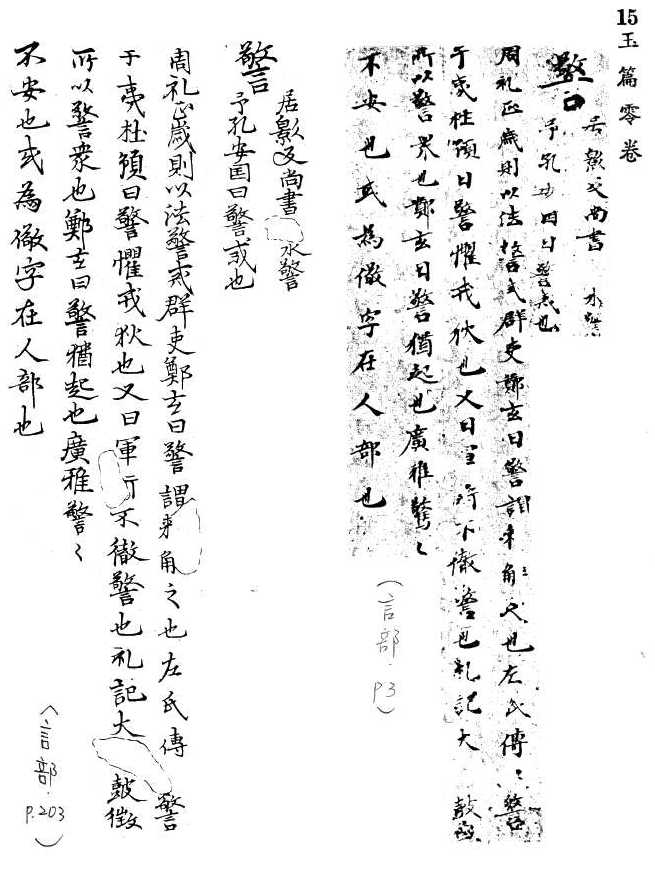 15 玉篇零卷
警
居影反尚書 水警
予孔曰警戒也
周礼正歳則以法警戒群吏鄭玄曰警謂来角〻之也左氏傳〻警
于夷杜預曰警懼戒狄也又曰軍行不徹警也礼記大 鼓
所以警衆也鄭玄曰警猶起也廣雅警〻
不安也或為儆字在人部也
(言部. P3)
警
居影反尚書 水警
予孔安囯曰警戒也
周礼正歳則以法警戒群吏鄭玄曰警謂来角之也左氏傳 警
于夷杜預曰警懼戒狄也又曰軍行不徹警也礼記大 鼓徴
所以警衆也鄭玄曰警猶起也廣雅警〻
不安也或為儆字在人部也
(言部. P.203)